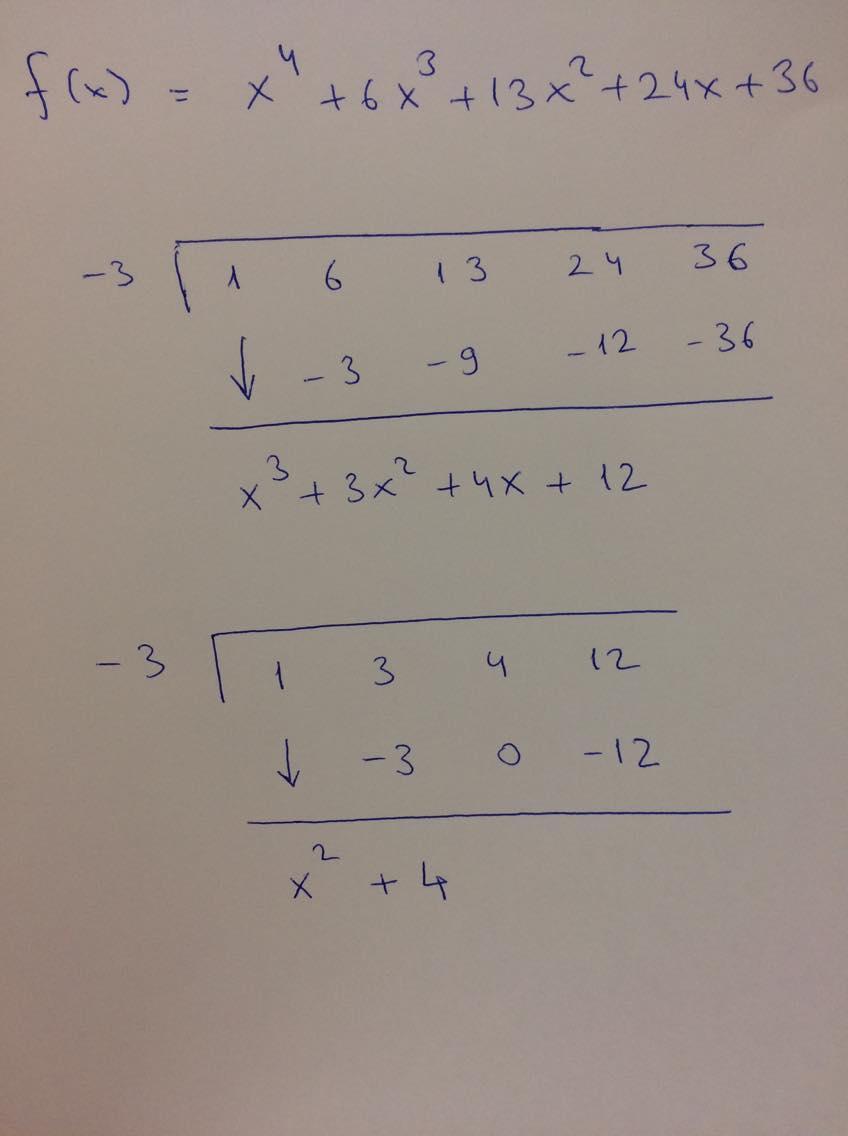 f(x) = x⁴ + 6x³ + 13x² + 24x + 36
-3 1 6 13 24 36
↓ -3 -9 -12 -36
x³ + 3x² + 4x + 12
-3 1 3 4 12
↓ -3 0 -12
x² + 4